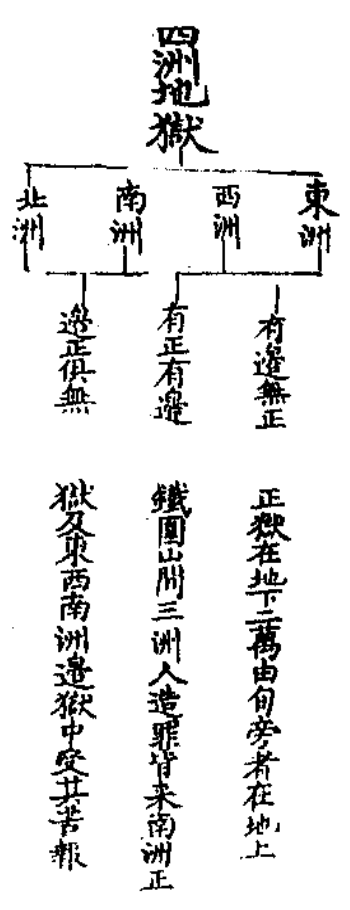 四洲地獄
東洲
西洲
南洲
北洲
有邊無正
有正有邊
邊正俱無
正獄在地下二萬由旬旁者在地上
鐵圍山間三洲人造罪皆来南洲正
獄及東西南洲邊獄中受其苦報